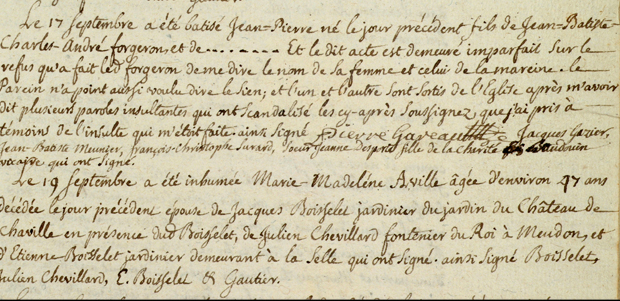 Le 17 Septembre a été batisé Jean=Pierre né le jour précédent fils de Jean=Batiste-
Charles-André forgeron, et de - - - - - - - - . Et le dit acte est demeuré imparfait sur le
refus qu'a fait led. forgeron de me dire le nom de sa femme et celui de la mareine. le
Parein n'a point aussi voulu dire le sien; et l'un et l'autre sont sortis de l'Eglise après m'avoir
dit plusieurs paroles insultantes qui ont scandalisé les cy-après soussignez, que j'ai pris à
témoins de l'insulte qui m'étoit faite. ainsi signé Pierre Jacques Gazier,
Jean Batiste Meunier, françois-Christophe Surard, Soeur Jeanne fille de la Charité & Baudouin
vicaire qui ont signé.
Le 19 Septembre a été inhumée Marie-Madeléne Aville âgée d'environ 47 ans
décédée le jour précédent épouse de Jacques Boisselet jardinier du jardin du Château de
Chaville en présence dud. Boisselet, de Julien Chevillard fontenier du Roi à Meudon, et
d'Etienne Boisselet jardinier demeurant à la Selle qui ont signé. ainsi signé Boisselet,
Julien Chevillard, E. Boisselet & Gautier.